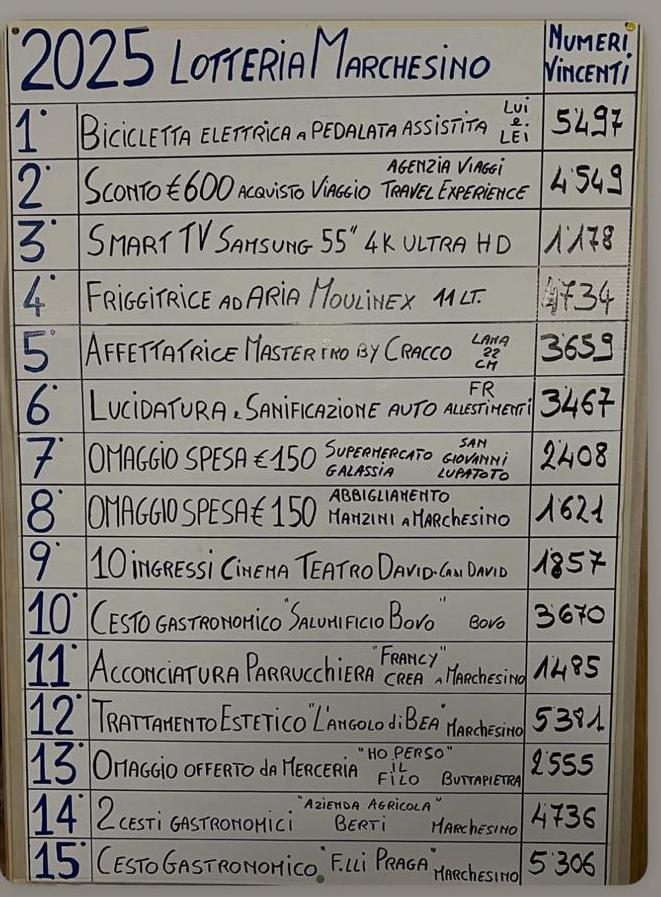 2025 LOTTERIA MARCHESINO NUMERI VINCENTI
1° BICICLETTA ELETTRICA A PEDALATA ASSISTITA LUI e LEI 5497
2° SCONTO €600 ACQUISTO VIAGGIO AGENZIA VIAGGI TRAVEL EXPERIENCE 4549
3° SMART TV SAMSUNG 55" 4K ULTRA HD 1178
4° FRIGGITRICE AD ARIA MOULINEX 11 LT. 4734
5° AFFETTATRICE MASTER PRO BY CRACCO LAMA 22 CM 3659
6° LUCIDATURA e SANIFICAZIONE AUTO FR ALLESTIMENTI 3467
7° OMAGGIO SPESA €150 SUPERMERCATO GALASSIA SAN GIOVANNI LUPATOTO 2408
8° OMAGGIO SPESA € 150 ABBIGLIAMENTO MANZINI A MARCHESINO 1621
9° 10 INGRESSI CINEMA TEATRO DAVID - DAVID 1857
10° CESTO GASTRONOMICO "SALUMIFICIO BOVO" BOVO 3670
11° ACCONCIATURA PARRUCCHIERA "FRANCY" CREA A MARCHESINO 1485
12° TRATTAMENTO ESTETICO "L'ANGOLO di BEA" MARCHESINO 5381
13° OMAGGIO OFFERTO da MERCERIA "HO PERSO" IL FILO BUTTAPIETRA 2555
14° 2 CESTI GASTRONOMICI "AZIENDA AGRICOLA" BERTI MARCHESINO 4736
15° CESTO GASTRONOMICO "F.lli PRAGA" MARCHESINO 5306